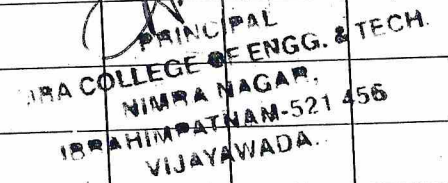 PRINCIPAL
COLLEGE OF ENGG. & TECH.
NIMRA NAGAR,
IBRAHIMPATNAM-521 456
VIJAYAWADA.